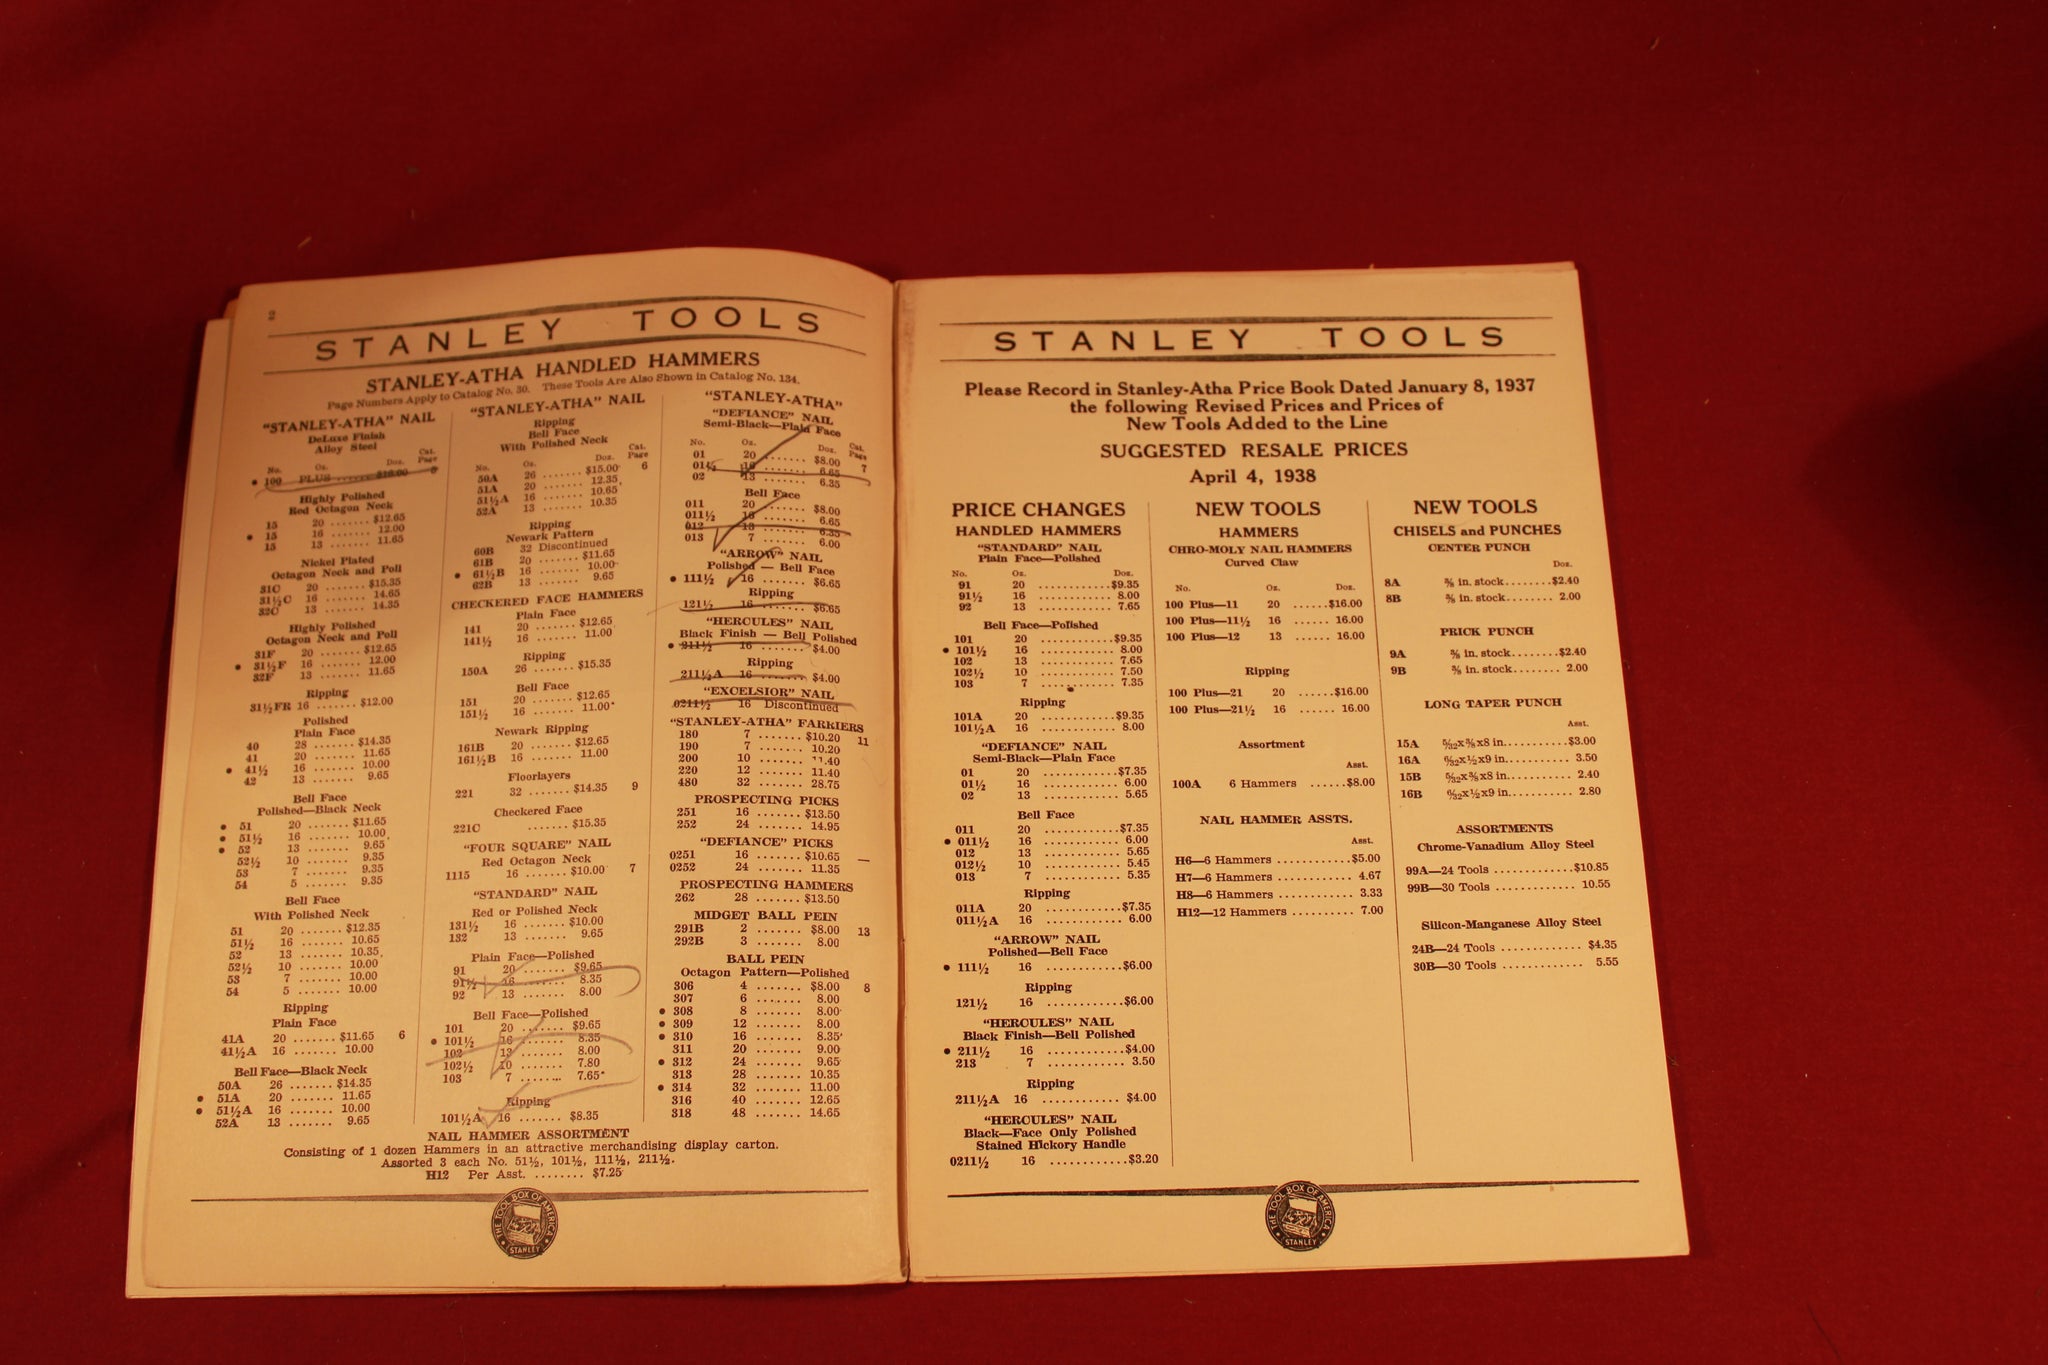 2
STANLEY TOOLS
STANLEY-ATHA HANDLED HAMMERS
Page Numbers Apply to Catalog No. 30. These Tools Are Also Shown in Catalog No. 134.
"STANLEY-ATHA" NAIL
DeLuxe Finish
Alloy Steel
No. Oz. Doz. Cat. Page
• 100 PLUS ....... $16.00 6
Highly Polished
Red Octagon Neck
15 20 ....... $12.65
• 15 16 ....... 12.00
15 13 ....... 11.65
Nickel Plated
Octagon Neck and Poll
31C 20 ....... $15.35
31½C 16 ....... 14.65
32C 13 ....... 14.35
Highly Polished
Octagon Neck and Poll
31F 20 ....... $12.65
• 31½F 16 ....... 12.00
32F 13 ....... 11.65
Ripping
31½FR 16 ....... $12.00
Polished
Plain Face
40 28 ....... $14.35
41 20 ....... 11.65
• 41½ 16 ....... 10.00
42 13 ....... 9.65
Bell Face
Polished—Black Neck
• 51 20 ....... $11.65
• 51½ 16 ....... 10.00
• 52 13 ....... 9.65
52½ 10 ....... 9.35
53 7 ....... 9.35
54 5 ....... 9.35
Bell Face
With Polished Neck
51 20 ....... $12.35
51½ 16 ....... 10.65
52 13 ....... 10.35
52½ 10 ....... 10.00
53 7 ....... 10.00
54 5 ....... 10.00
Ripping
Plain Face
41A 20 ....... $11.65 6
41½A 16 ....... 10.00
Bell Face—Black Neck
50A 26 ....... $14.35
• 51A 20 ....... 11.65
• 51½A 16 ....... 10.00
52A 13 ....... 9.65
"STANLEY-ATHA" NAIL
Ripping
Bell Face
With Polished Neck
No. Oz. Doz. Cat. Page
50A 26 ....... $15.00 6
51A 20 ....... 12.35
51½A 16 ....... 10.65
52A 13 ....... 10.35
Ripping
Newark Pattern
60B 32 Discontinued
61B 20 ....... $11.65
• 61½B 16 ....... 10.00
62B 13 ....... 9.65
CHECKERED FACE HAMMERS
Plain Face
141 20 ....... $12.65
141½ 16 ....... 11.00
Ripping
150A 26 ....... $15.35
Bell Face
151 20 ....... $12.65
151½ 16 ....... 11.00
Newark Ripping
161B 20 ....... $12.65
161½B 16 ....... 11.00
Floorlayers
221 32 ....... $14.35 9
Checkered Face
221C ....... $15.35
"FOUR SQUARE" NAIL
Red Octagon Neck
1115 16 ....... $10.00 7
"STANDARD" NAIL
Red or Polished Neck
131½ 16 ....... $10.00
132 13 ....... 9.65
Plain Face—Polished
91 20 ....... $9.65
91½ 16 ....... 8.35
92 13 ....... 8.00
Bell Face—Polished
101 20 ....... $9.65
• 101½ 16 ....... 8.35
102 13 ....... 8.00
102½ 10 ....... 7.80
103 7 ....... 7.65
Ripping
101½A 16 ....... $8.35
"STANLEY-ATHA"
"DEFIANCE" NAIL
Semi-Black—Plain Face
No. Oz. Doz. Cat. Page
01 20 ....... $8.00
01½ 16 ....... 6.65 7
02 13 ....... 6.35
Bell Face
011 20 ....... $8.00
011½ 16 ....... 6.65
012 13 ....... 6.35
013 7 ....... 6.00
"ARROW" NAIL
Polished — Bell Face
• 111½ 16 ....... $6.65
Ripping
121½ 16 ....... $6.65
"HERCULES" NAIL
Black Finish — Bell Polished
• 211½ 16 ....... $4.00
Ripping
211½A 16 ....... $4.00
"EXCELSIOR" NAIL
0211½ 16 Discontinued
"STANLEY-ATHA" FARRIERS
180 7 ....... $10.20 11
190 7 ....... 10.20
200 10 ....... 11.40
220 12 ....... 11.40
480 32 ....... 28.75
PROSPECTING PICKS
251 16 ....... $13.50
252 24 ....... 14.95
"DEFIANCE" PICKS
0251 16 ....... $10.65
0252 24 ....... 11.35
PROSPECTING HAMMERS
262 28 ....... $13.50
MIDGET BALL PEIN
291B 2 ....... $8.00 13
292B 3 ....... 8.00
BALL PEIN
Octagon Pattern—Polished
306 4 ....... $8.00 8
307 6 ....... 8.00
• 308 8 ....... 8.00
• 309 12 ....... 8.00
• 310 16 ....... 8.35
311 20 ....... 9.00
• 312 24 ....... 9.65
313 28 ....... 10.35
• 314 32 ....... 11.00
316 40 ....... 12.65
318 48 ....... 14.65
NAIL HAMMER ASSORTMENT
Consisting of 1 dozen Hammers in an attractive merchandising display carton.
Assorted 3 each No. 51½, 101½, 111½, 211½.
H12 Per Asst. ........ $7.25
THE TOOL BOX OF AMERICA
STANLEY
STANLEY TOOLS
Please Record in Stanley-Atha Price Book Dated January 8, 1937
the following Revised Prices and Prices of
New Tools Added to the Line
SUGGESTED RESALE PRICES
April 4, 1938
PRICE CHANGES
HANDLED HAMMERS
"STANDARD" NAIL
Plain Face—Polished
No. Oz. Doz.
91 20 ............ $9.35
91½ 16 ............ 8.00
92 13 ............ 7.65
Bell Face—Polished
101 20 ............ $9.35
• 101½ 16 ............ 8.00
102 13 ............ 7.65
102½ 10 ............ 7.50
103 7 ............ 7.35
Ripping
101A 20 ............ $9.35
101½A 16 ............ 8.00
"DEFIANCE" NAIL
Semi-Black—Plain Face
01 20 ............ $7.35
01½ 16 ............ 6.00
02 13 ............ 5.65
Bell Face
011 20 ............ $7.35
• 011½ 16 ............ 6.00
012 13 ............ 5.65
012½ 10 ............ 5.45
013 7 ............ 5.35
Ripping
011A 20 ............ $7.35
011½A 16 ............ 6.00
"ARROW" NAIL
Polished—Bell Face
• 111½ 16 ............ $6.00
Ripping
121½ 16 ............ $6.00
"HERCULES" NAIL
Black Finish—Bell Polished
• 211½ 16 ............ $4.00
213 7 ............ 3.50
Ripping
211½A 16 ............ $4.00
"HERCULES" NAIL
Black—Face Only Polished
Stained Hickory Handle
0211½ 16 ............ $3.20
NEW TOOLS
HAMMERS
CHRO-MOLY NAIL HAMMERS
Curved Claw
No. Oz. Doz.
100 Plus—11 20 ...... $16.00
100 Plus—11½ 16 ...... 16.00
100 Plus—12 13 ...... 16.00
Ripping
100 Plus—21 20 ...... $16.00
100 Plus—21½ 16 ...... 16.00
Assortment
Asst.
100A 6 Hammers ...... $8.00
NAIL HAMMER ASSTS.
Asst.
H6—6 Hammers ............ $5.00
H7—6 Hammers ............ 4.67
H8—6 Hammers ............ 3.33
H12—12 Hammers .......... 7.00
NEW TOOLS
CHISELS and PUNCHES
CENTER PUNCH
Doz.
8A ⅝ in. stock ........ $2.40
8B ⅝ in. stock ........ 2.00
PRICK PUNCH
9A ⅝ in. stock ........ $2.40
9B ⅝ in. stock ........ 2.00
LONG TAPER PUNCH
Asst.
15A 5/32x⅜x8 in. .......... $3.00
16A 6/32x½x9 in. .......... 3.50
15B 5/32x⅜x8 in. .......... 2.40
16B 6/32x½x9 in. .......... 2.80
ASSORTMENTS
Chrome-Vanadium Alloy Steel
99A—24 Tools ............ $10.85
99B—30 Tools ............ 10.55
Silicon-Manganese Alloy Steel
24B—24 Tools ............ $4.35
30B—30 Tools ............ 5.55
THE TOOL BOX OF AMERICA
STANLEY